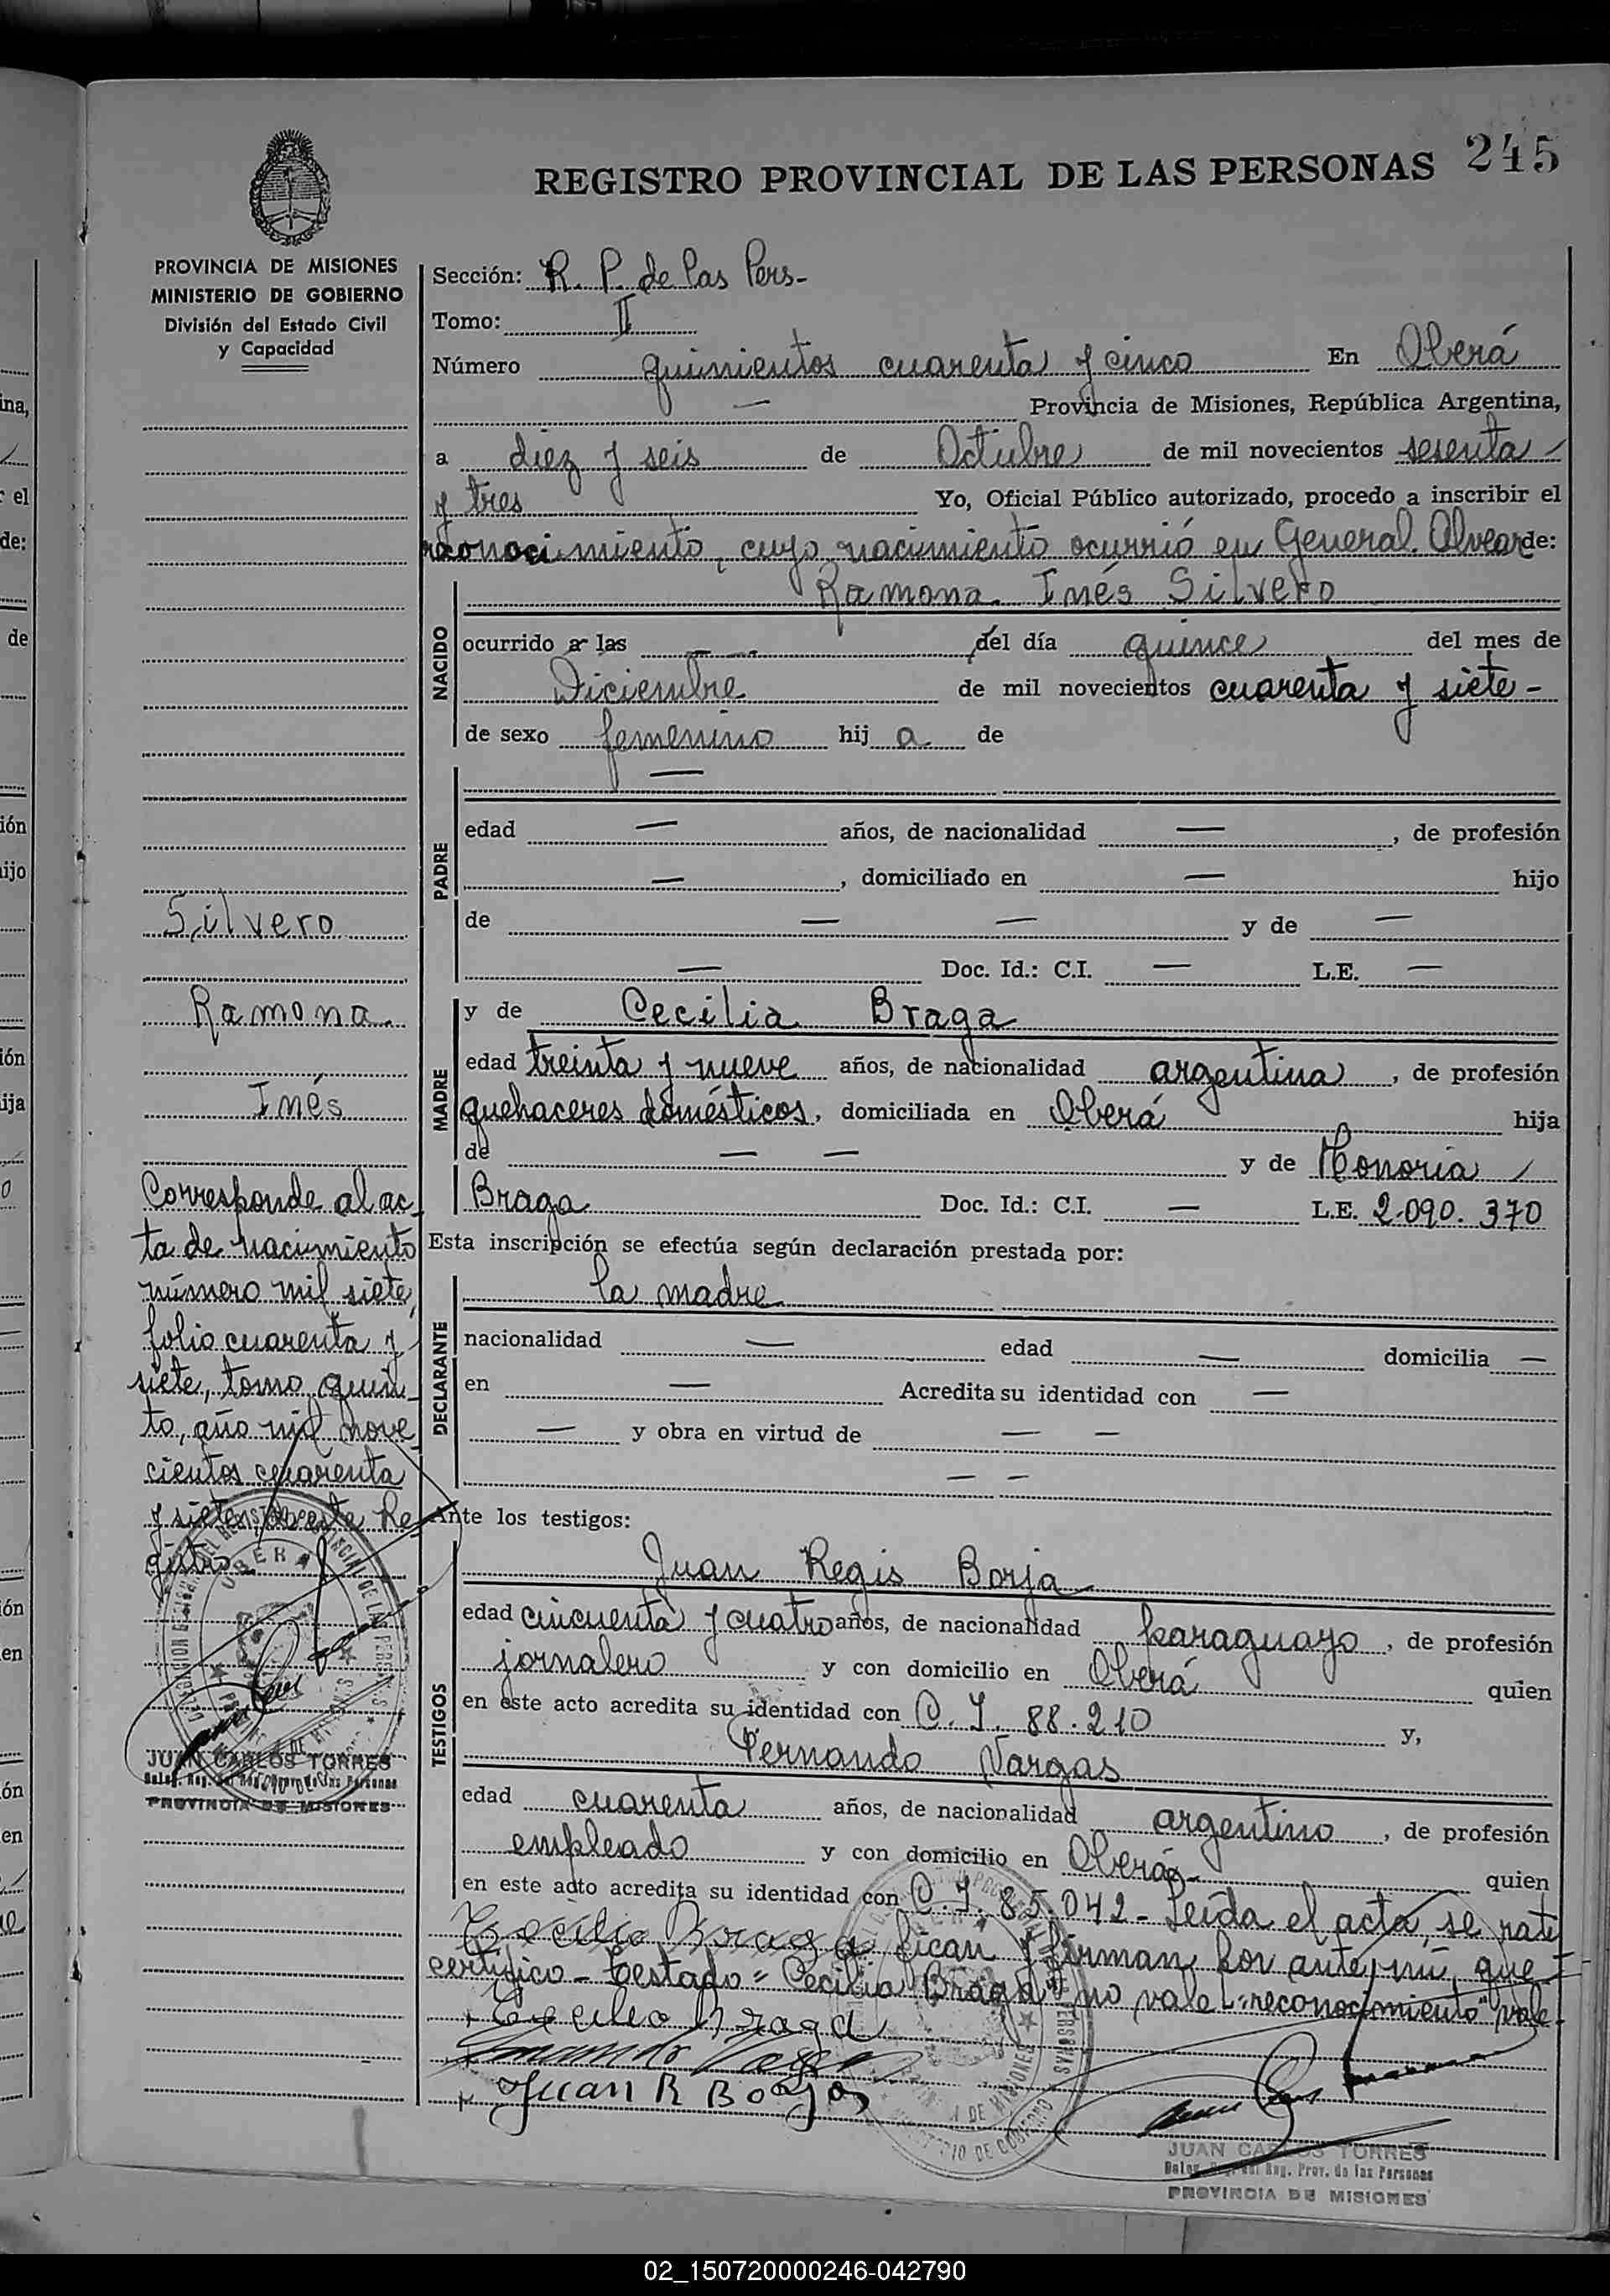 245
REGISTRO PROVINCIAL DE LAS PERSONAS
PROVINCIA DE MISIONES
MINISTERIO DE GOBIERNO
División del Estado Civil
y Capacidad
Silvero
Ramona
Inés
Corresponde al ac-
ta de nacimiento
número mil siete,
folio cuarenta y
siete, tomo quin-
to, año mil nove
cientos cuarenta
y siete, de este Re
gistro
OBERA
JUAN CARLOS TORRES
Deleg. Reg. Prov. de las Personas
PROVINCIA DE MISIONES
Sección: R. P. de las Pers-
Tomo: II
Número quinientos cuarenta y cinco En Oberá
— Provincia de Misiones, República Argentina,
a diez y seis de Octubre de mil novecientos sesenta
y tres Yo, Oficial Público autorizado, procedo a inscribir el
reconocimiento, cuyo nacimiento ocurrió en General Alvear de:
NACIDO
Ramona Inés Silvero
ocurrido a las — — del día quince del mes de
Diciembre de mil novecientos cuarenta y siete-
de sexo femenino hij a de
PADRE
—
edad — años, de nacionalidad — , de profesión
— , domiciliado en — hijo
de — — y de —
— Doc. Id.: C.I. — L.E. —
MADRE
y de Cecilia Braga
edad treinta y nueve años, de nacionalidad argentina , de profesión
quehaceres domésticos, domiciliada en Oberá hija
de — — y de Honoria
Braga Doc. Id.: C.I. — L.E. 2.090.370
Esta inscripción se efectúa según declaración prestada por:
DECLARANTE
la madre
nacionalidad — edad — domicilia —
en — Acredita su identidad con —
— y obra en virtud de — —
— —
Ante los testigos:
TESTIGOS
Juan Regis Borja
edad cincuenta y cuatro años, de nacionalidad paraguayo , de profesión
jornalero y con domicilio en Oberá quien
en este acto acredita su identidad con C. I. 88.210 y,
Fernando Vargas
edad cuarenta años, de nacionalidad argentino , de profesión
empleado y con domicilio en Oberá- quien
en este acto acredita su identidad con C. I. 85.042 - Leída el acta, se rati
Cecilia Braga fican y firman por ante mí, que
certifico - Testado "Cecilia Braga" no vale - "reconocimiento" vale-
Cecilia Braga
Fernando Vargas
Juan R Borja
JUAN CARLOS TORRES
Deleg. Reg. Prov. de las Personas
PROVINCIA DE MISIONES
02_150720000246-042790